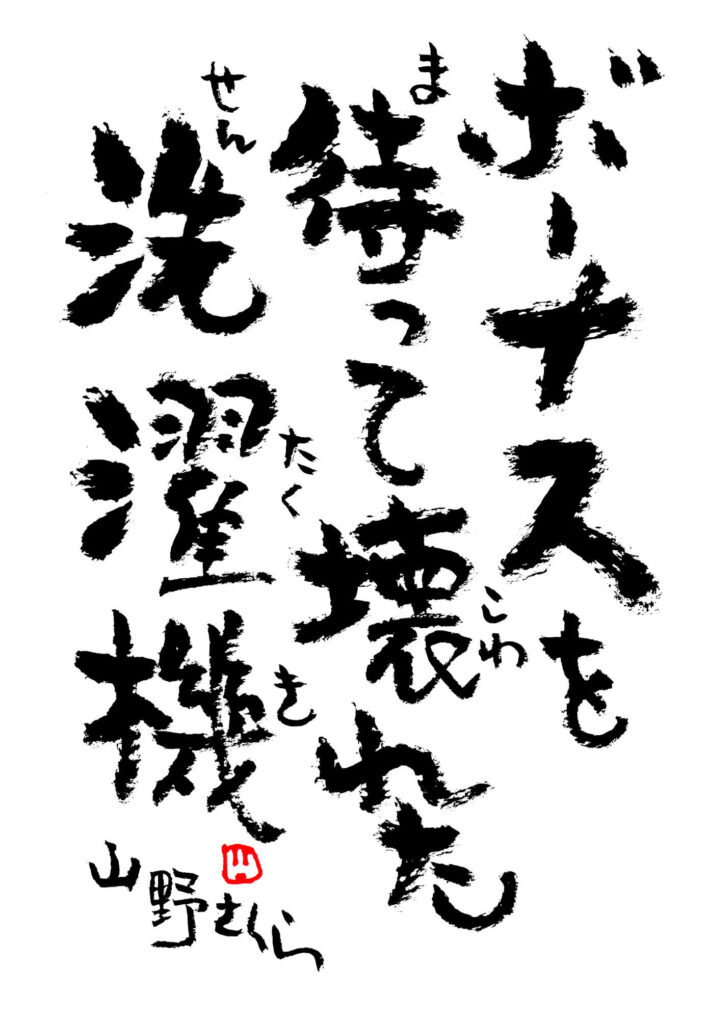 ボーナスを
待って壊れた
ま
こわ
洗濯機
せん
たく
き
山野さくら
山